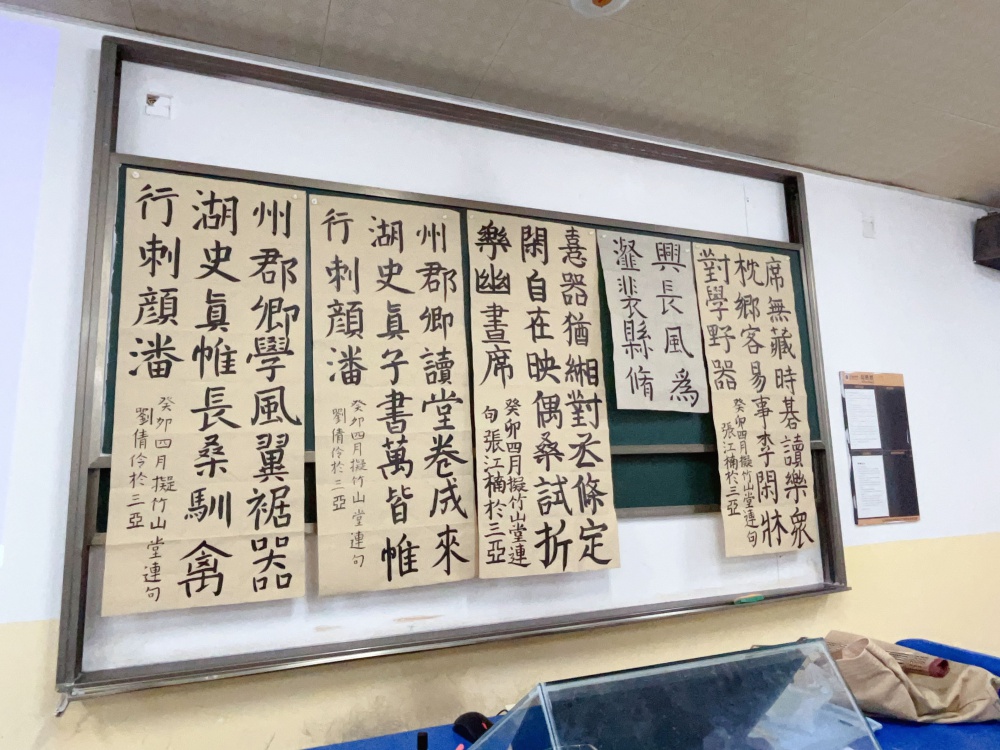 席無藏時碁讀樂衆
枕鄉客易事李閑牀
對學野器
癸卯四月擬竹山堂連句
張江楠於三亞
興長風為
裴縣脩
憙器猶緗對丞條定
閑自在映偶桑試折
樂幽晝席
癸卯四月擬竹山堂連
句張江楠於三亞
州郡卿讀堂卷成來
湖史眞子書萬皆帷
行刺顔潘
癸卯四月擬竹山堂連句
劉倩伶於三亞
州郡卿學風翼裾器
湖史眞帷長桑馴禽
行刺顔潘
癸卯四月擬竹山堂連句
劉倩伶於三亞